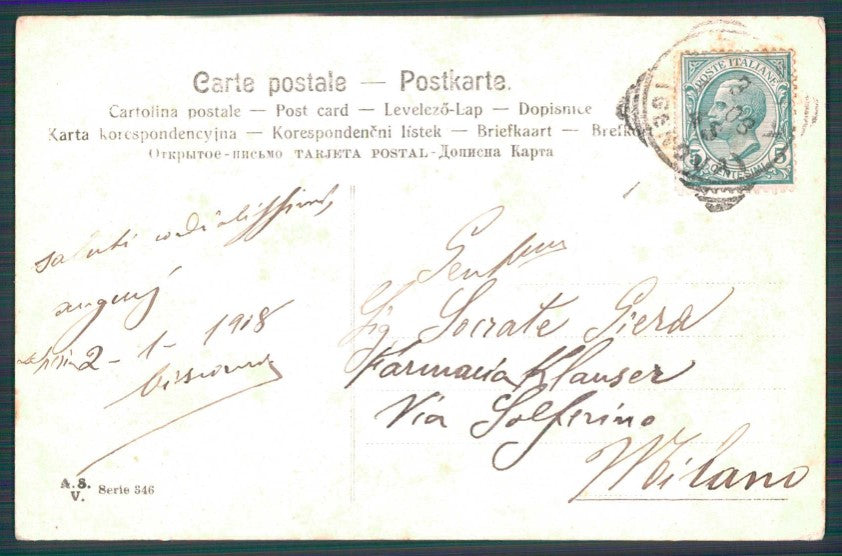 Carte postale — Postkarte.
Cartolina postale — Post card — Levelező-Lap — Dopisnice
Karta korespondencyjna — Korespondenční lístek — Briefkaart — Brefko
Открытое-письмо TARJETA POSTAL-Дописна Карта
POSTE ITALIANE
5 CENTESIMI 5
saluti cordialissimi
auguri
2 - 1 - 1918
Sig Socrate Giera
Farmacia Klauser
Via Solferino
Milano
A. S.
V. Serie 546